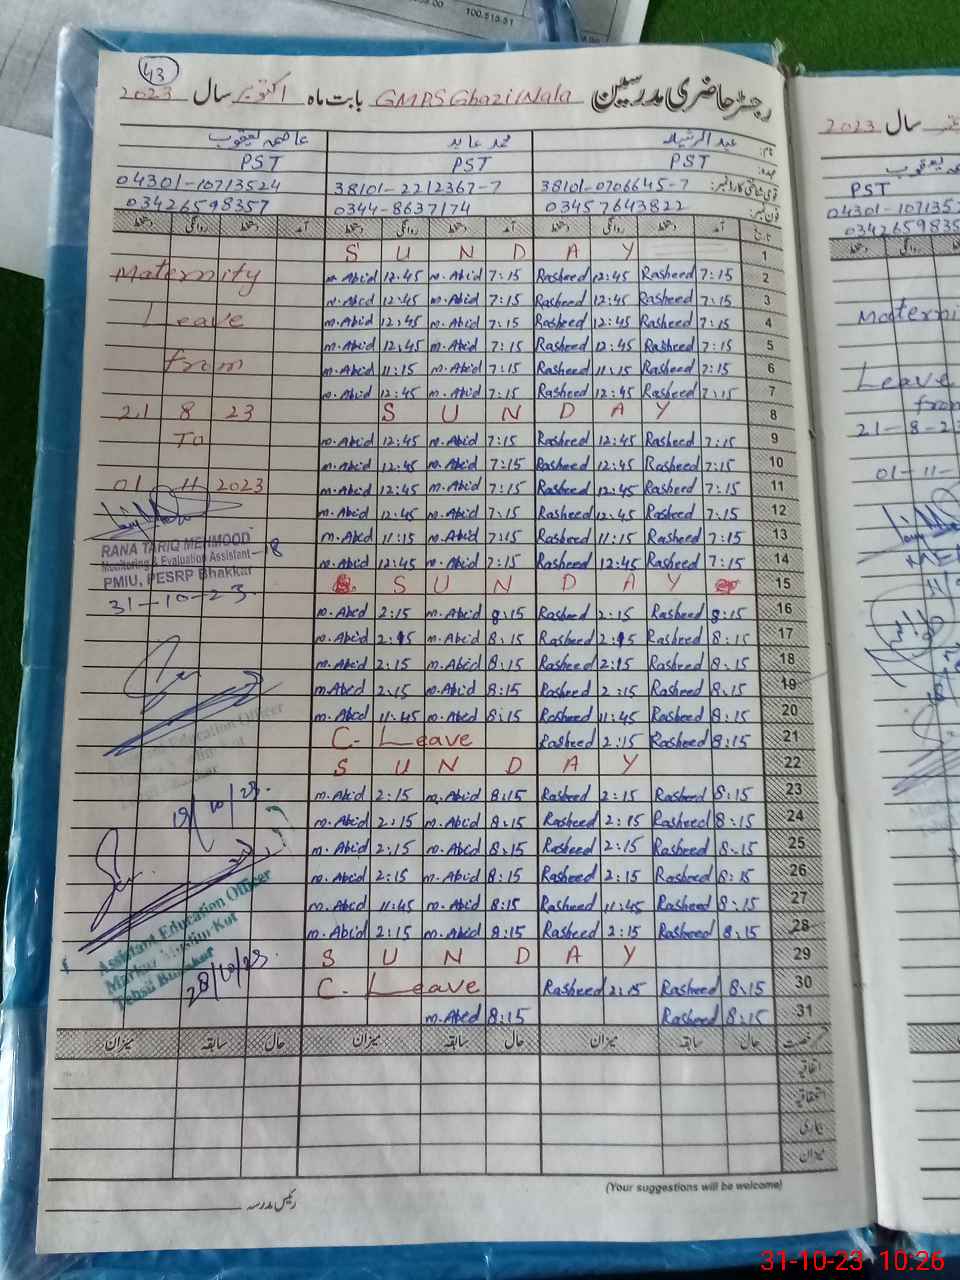 43
رجسٹر حاضری مدرسین GMPS Ghazi Wala بابت ماہ اکتوبر سال 2023
نام: عبدالرشید محمد عابد عاصمہ یعقوب
عہدہ: PST PST PST
قومی شناختی کارڈ نمبر: 38101-0706645-7 38101-2212367-7 04301-10713524
فون نمبر: 03457643822 0344-8637174 03426598357
تاریخ آمد دستخط روانگی دستخط آمد دستخط روانگی دستخط آمد دستخط روانگی دستخط
S U N D A Y 1
Maternity m.Abid 12:45 m.Abid 7:15 Rasheed 12:45 Rasheed 7:15 2
m.Abid 12:45 m.Abid 7:15 Rasheed 12:45 Rasheed 7:15 3
Leave m.Abid 12:45 m.Abid 7:15 Rasheed 12:45 Rasheed 7:15 4
m.Abid 12:45 m.Abid 7:15 Rasheed 12:45 Rasheed 7:15 5
from m.Abid 11:15 m.Abid 7:15 Rasheed 11:15 Rasheed 7:15 6
m.Abid 12:45 m.Abid 7:15 Rasheed 12:45 Rasheed 7:15 7
21 8 23 S U N D A Y 8
To m.Abid 12:45 m.Abid 7:15 Rasheed 12:45 Rasheed 7:15 9
m.Abid 12:45 m.Abid 7:15 Rasheed 12:45 Rasheed 7:15 10
01 11 2023 m.Abid 12:45 m.Abid 7:15 Rasheed 12:45 Rasheed 7:15 11
m.Abid 12:45 m.Abid 7:15 Rasheed 12:45 Rasheed 7:15 12
m.Abid 11:15 m.Abid 7:15 Rasheed 11:15 Rasheed 7:15 13
m.Abid 12:45 m.Abid 7:15 Rasheed 12:45 Rasheed 7:15 14
RANA TARIQ MEHMOOD
Monitoring & Evaluation Assistant-18
PMIU, PESRP Bhakkar
31-10-23
S U N D A Y 15
m.Abid 2:15 m.Abid 8:15 Rasheed 2:15 Rasheed 8:15 16
m.Abid 2:15 m.Abid 8:15 Rasheed 2:15 Rasheed 8:15 17
m.Abid 2:15 m.Abid 8:15 Rasheed 2:15 Rasheed 8:15 18
m.Abid 2:15 m.Abid 8:15 Rasheed 2:15 Rasheed 8:15 19
m.Abid 11:45 m.Abid 8:15 Rasheed 11:45 Rasheed 8:15 20
C. Leave Rasheed 2:15 Rasheed 8:15 21
Education Officer
S U N D A Y 22
m.Abid 2:15 m.Abid 8:15 Rasheed 2:15 Rasheed 8:15 23
19/10/23
m.Abid 2:15 m.Abid 8:15 Rasheed 2:15 Rasheed 8:15 24
m.Abid 2:15 m.Abid 8:15 Rasheed 2:15 Rasheed 8:15 25
m.Abid 2:15 m.Abid 8:15 Rasheed 2:15 Rasheed 8:15 26
m.Abid 11:45 m.Abid 8:15 Rasheed 11:45 Rasheed 8:15 27
m.Abid 2:15 m.Abid 8:15 Rasheed 2:15 Rasheed 8:15 28
Assistant Education Officer
Markaz Muslim Kot
Tehsil Bhakkar
28/10/23
S U N D A Y 29
C. Leave Rasheed 2:15 Rasheed 8:15 30
m.Abid 8:15 Rasheed 8:15 31
رخصت حال سابقہ میزان حال سابقہ میزان حال سابقہ میزان
اتفاقیہ
استحقاقیہ
بیماری
میزان
(Your suggestions will be welcome)
رئیس مدرسہ
سال 2023
PST
04301-1071352
0342659835
Leave
from
21-8-23
01-11-
31-10-23 10:26